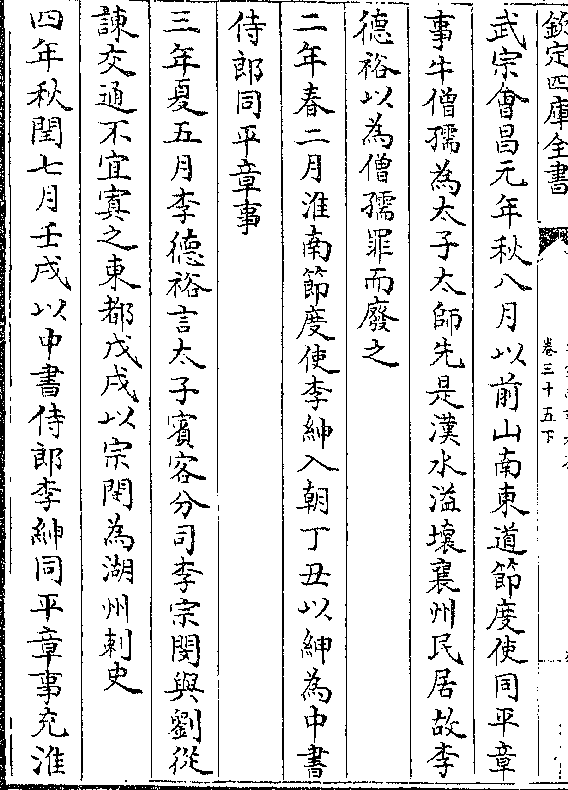 欽定四庫全書
卷三十五下
武宗會昌元年秋八月以前山南東道節度使同平章
事牛僧孺為太子太師先是漢水溢壞襄州民居故李
德裕以為僧孺罪而廢之
二年春二月淮南節度使李紳入朝丁丑以紳為中書
侍郎同平章事
三年夏五月李德裕言太子賓客分司李宗閔與劉從
諫交通不宜寘之東都戊戌以宗閔為湖州刺史
四年秋閏七月壬戌以中書侍郎李紳同平章事充淮